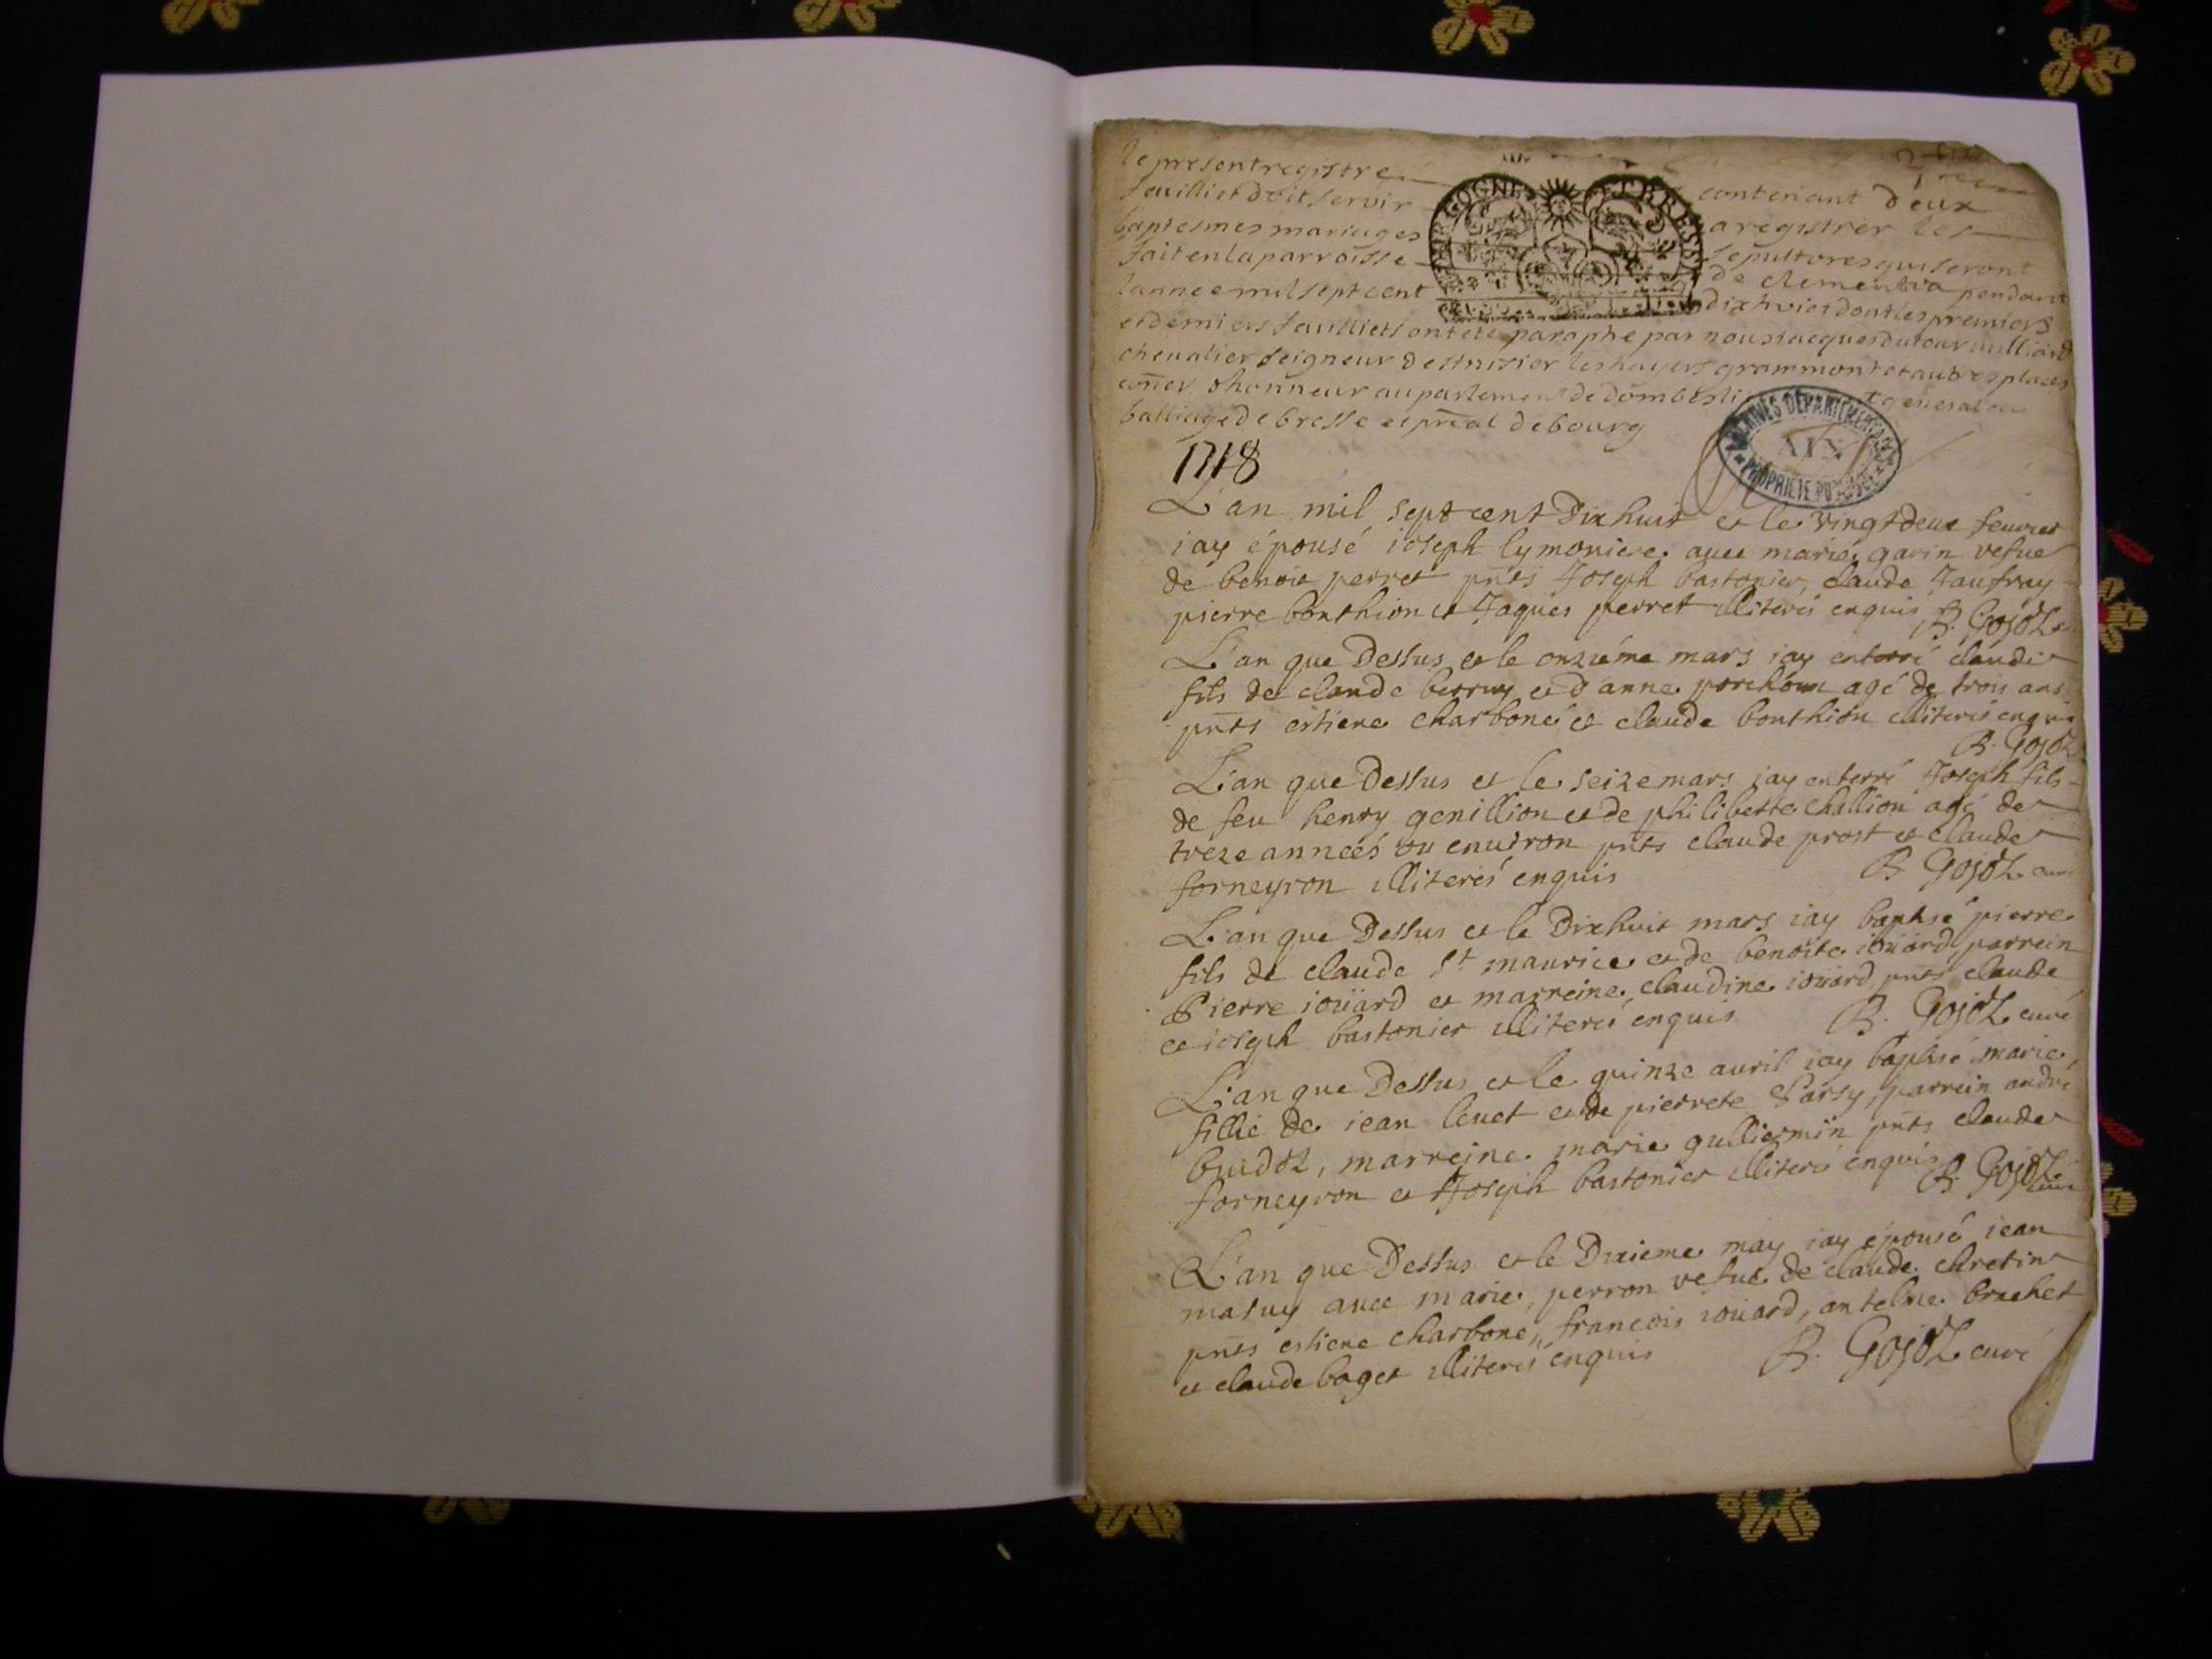 le present registre contenant deux
feuilliet doit servir a registrer les
baptesmes mariages sepultores qui seront
fait en la parroisse de clementia pendant
lannee mil sept cent dix huict dont les premiers
et derniers feuilliets ont ete paraphe par nous jacques dutour
chevalier seigneur de st nisier les grammont et autres places
coner dhonneur au parlement de dombes general au
balliage de bresse et pnal de bourg
BOURGOGNE ET BRESSE
ARCHIVES DEPARTEMENTALES
AIN
PROPRIETE PUBLIQUE
1718
L'an mil sept cent Dixhuit et le vingt deux feuvrier
iay épousé ioseph lymoniere auec marie garin vefue
de benoit perret pnts Joseph bastonier, claude Jaufray
pierre bonthion et Jaques perret illiterés enquis B. Gojoz
L'an que Dessus et le onziéme mars iay enterré claude
fils de claude berruy et d'anne agé de trois ans
pnts estiene charboné et claude bonthion illiterés enquis
B. Gojoz
L'an que Dessus et le seize mars iay enterré Joseph fils
de feu henry genillion et de philiberte challion agé de
treze années ou enuiron pnts claude prost et claude
forneyron illiterés enquis B Gojoz curé
L'an que Dessus et le Dixhuit mars iay baptisé pierre
fils de claude st maurice et de benoite ioüard parrein
Pierre ioüard et marreine claudine ioüard pnts claude
et ioseph bastonier illiterés enquis B. Gojoz curé
L'an que Dessus et le quinze auril iay baptisé marie
fillie de iean leuet et de pierrete Parsy, parrein andré
buidoz, marreine marie gulliermin pnts claude
forneyron et Joseph bastonier illiterés enquis B. Gojoz curé
L'an que Dessus et le Dixieme may iay épousé iean
masuy auec marie perron vefue de claude chretin
pnts estiene charboné, francois ioüard, antelme brachet
et claude baget illiterés enquis B. Gojoz curé